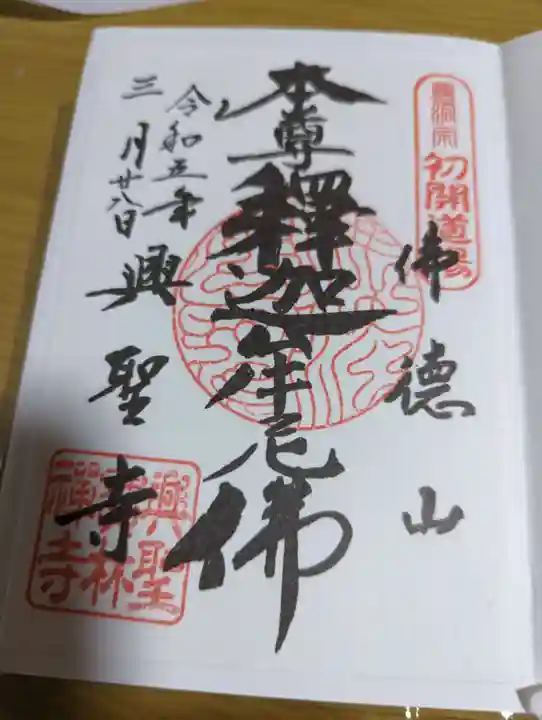 曹洞宗
初開道場
佛德山
本尊釋迦牟尼佛
令和五年
三月廿八日
興聖寺
興聖
寶林
禪寺